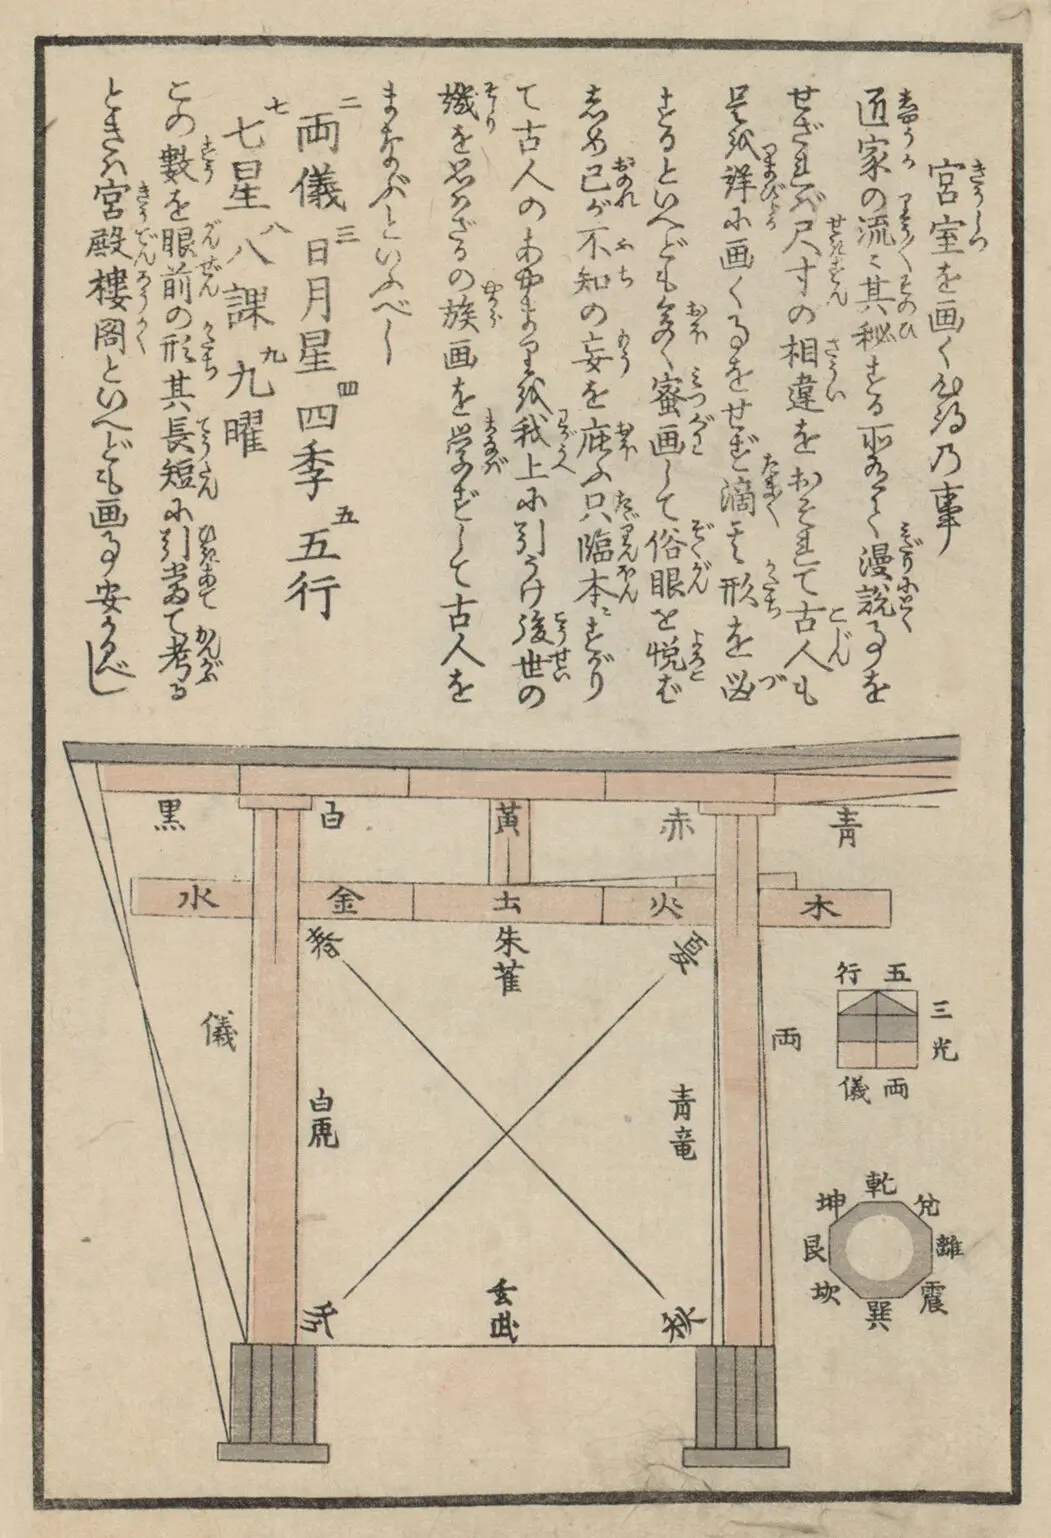 宮室を画く心得乃事
匠家の流〻其秘する所多く漫説事を
せざれバ尺寸の相違をおそれて古人も
是を詳に画く事をせず滴其形を図
するといへども多く蜜画して俗眼を悦ば
しめ己が不知の妄を庇ふ只臨本にすがり
て古人のあやまりを我上に引うけ後世の
譏を思ハざるの族画を学ばずして古人を
まなぶといふべし
二両儀 三日月星 四四季 五五行
七七星 八八課 九九曜
この數を眼前の形其長短に引當て考る
ときハ宮殿樓閣といへども画事安かるべし
青 赤 黄 白 黒
木 火 土 金 水
夏
朱雀
両
儀
青竜
白虎
玄武
五行
三光
両儀
乾
兌
離
震
巽
坎
艮
坤